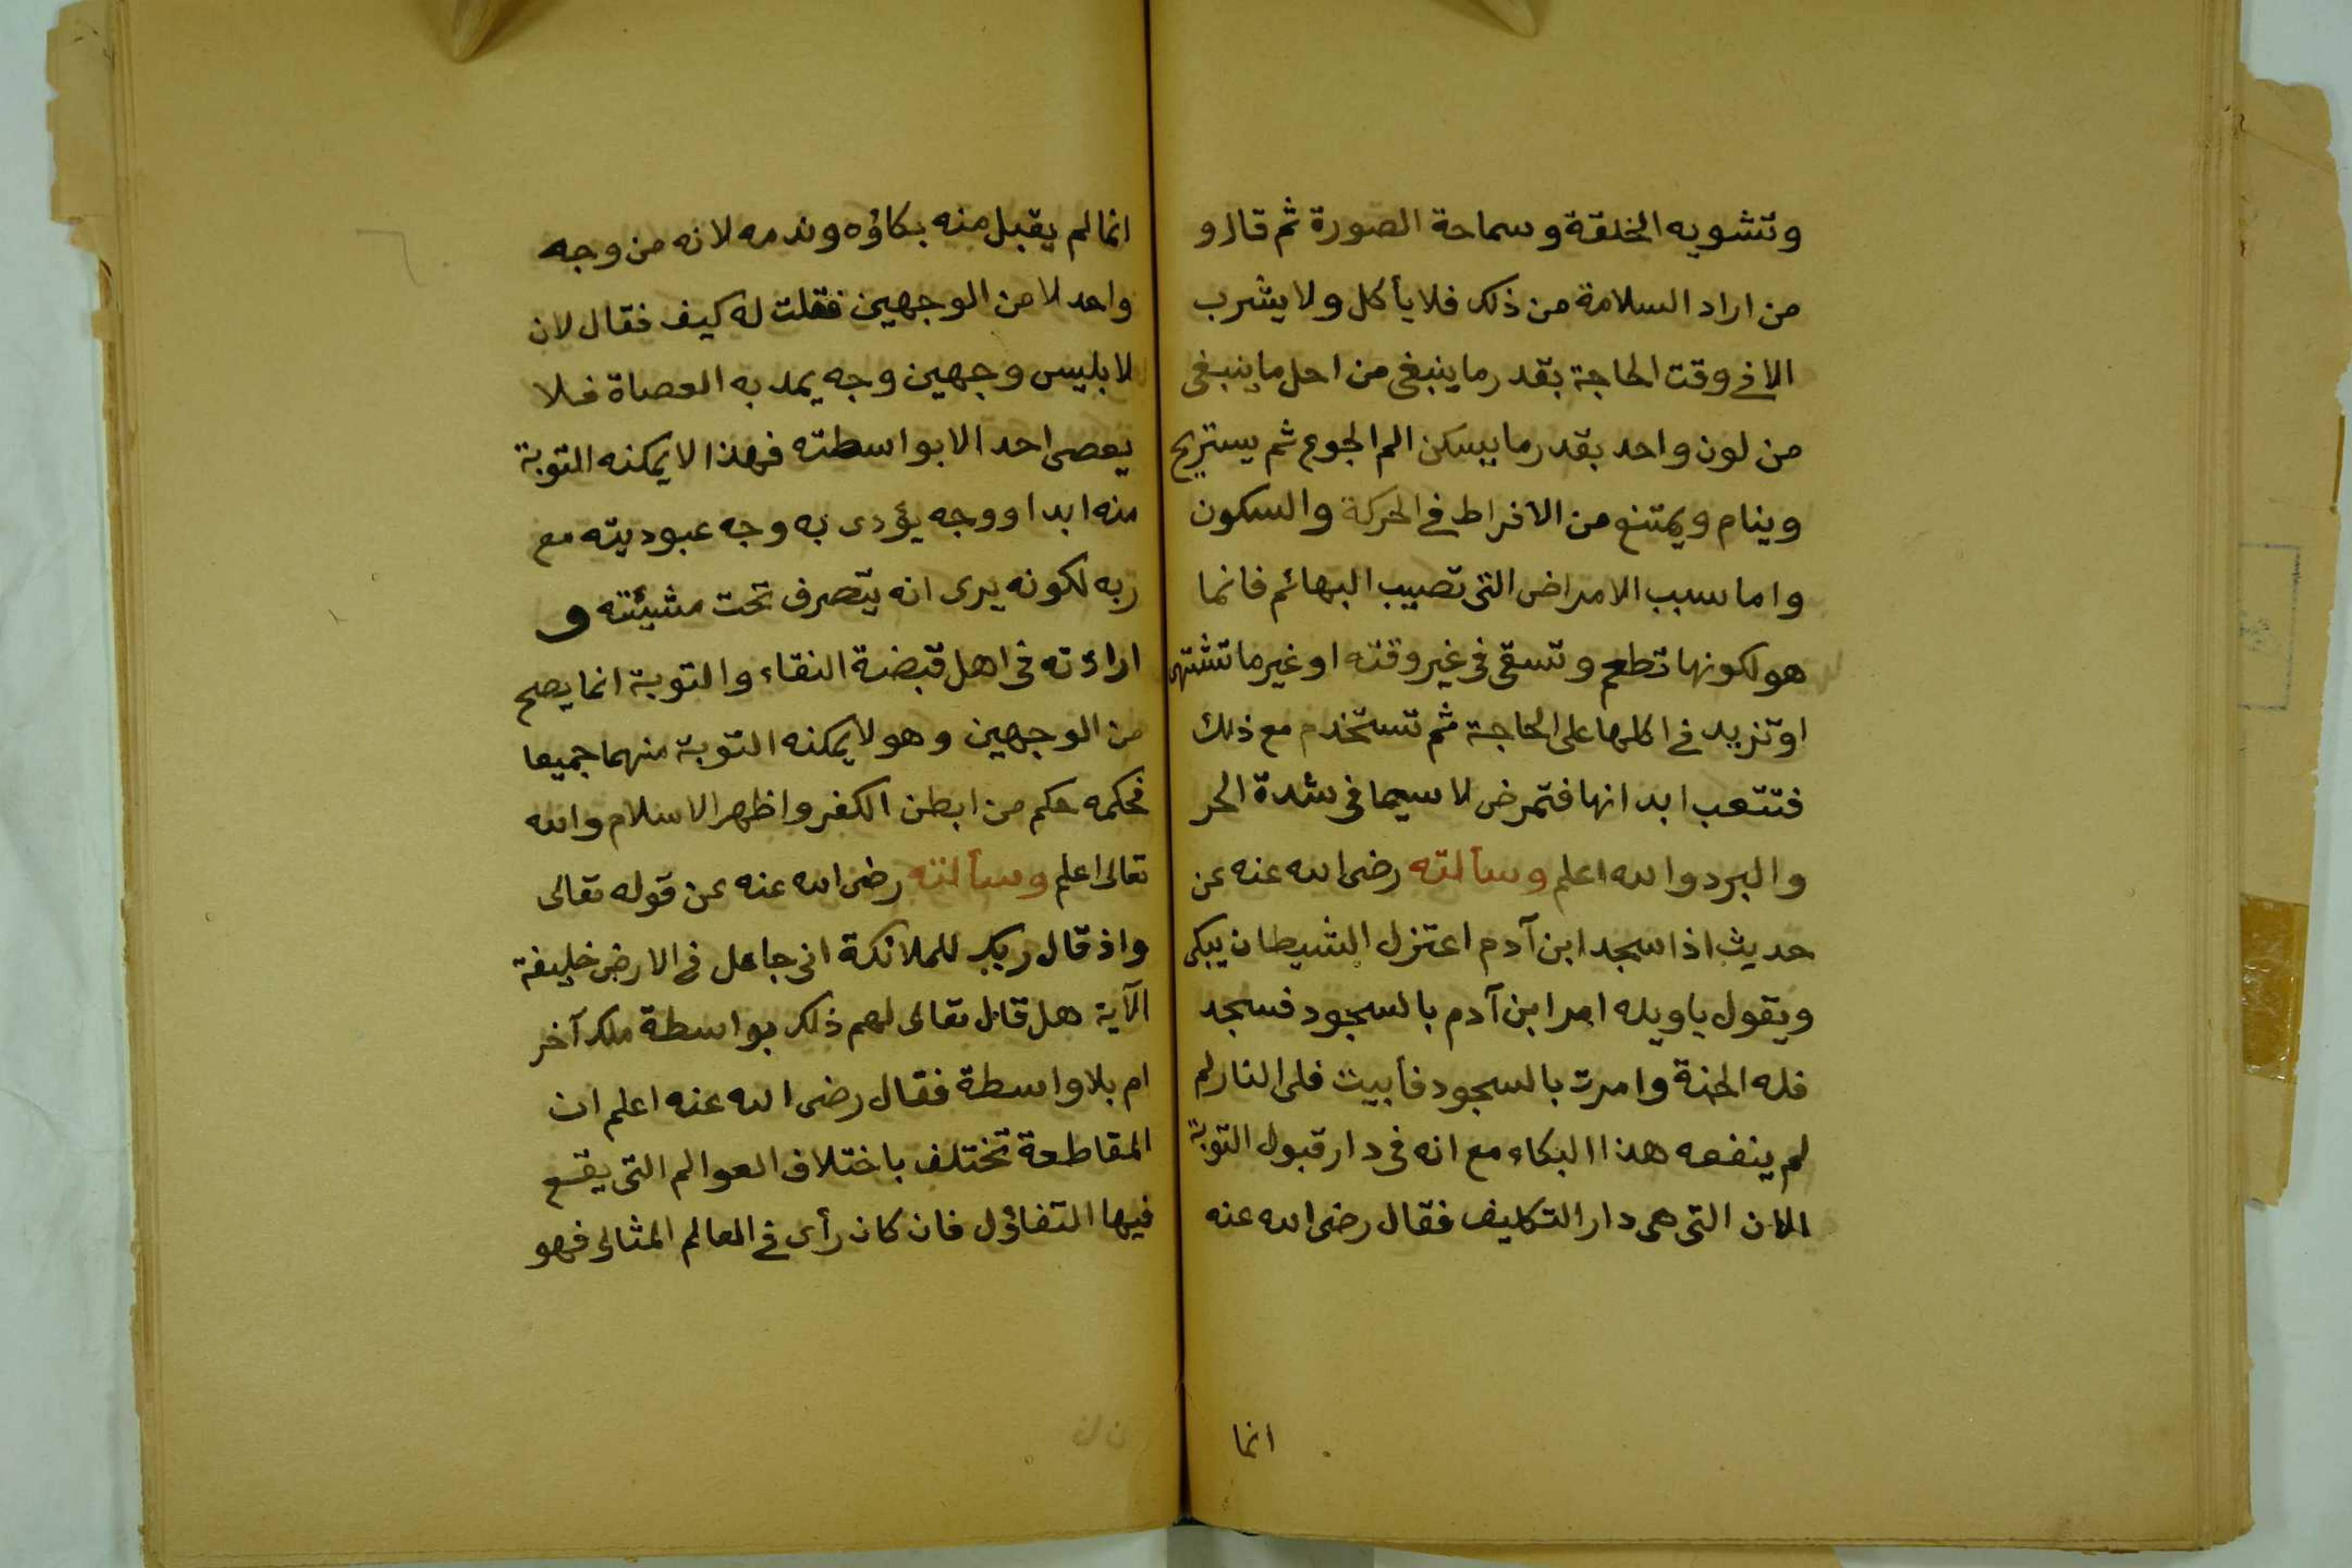 وتشويه الخلقة وسماحة الصورة ثم قال و
من اراد السلامة من ذلك فلا يأكل ولا يشرب
الا فى وقت الحاجة بقدر ما ينبغى من احل ما ينبغى
من لون واحد بقدر ما يسكن الم الجوع ثم يستريح
وينام ويمتنع من الافراط فى الحركة والسكون
واما سبب الامراض التى تصيب البهائم فانما
هو لكونها تطعم وتسقى فى غير وقته او غير ما تشتهى
او تزيد فى اكلها على الحاجة ثم تستخدم مع ذلك
فتتعب ابدانها فتمرض لا سيما فى شدة الحر
والبرد والله اعلم وسألته رضى الله عنه عن
حديث اذا سجد ابن آدم اعتزل الشيطان يبكى
ويقول يا ويله امر ابن آدم بالسجود فسجد
فله الجنة وامرت بالسجود فأبيت فلى النار لم
لم ينفعه هذا البكاء مع انه فى دار قبول التوبة
الان التى هى دار التكليف فقال رضى الله عنه
انما
انما لم يقبل منه بكاؤه وندمه لانه من وجه
واحد لا من الوجهين فقلت له كيف فقال لان
لابليس وجهين وجه يمد به العصاة فلا
يعصى احد الا بواسطته فهذا لا يمكنه التوبة
منه ابدا ووجه يؤدى به وجه عبوديته مع
ربه لكونه يرى انه يتصرف تحت مشيئته و
ارادته فى اهل قبضة الشقاء والتوبة انما يصح
من الوجهين وهو لا يمكنه التوبة منهما جميعا
فحكمه حكم من ابطن الكفر واظهر الاسلام والله
تعالى اعلم وسألته رضى الله عنه عن قوله تعالى
واذ قال ربك للملائكة انى جاعل فى الارض خليفة
الآية هل قال تعالى لهم ذلك بواسطة ملك آخر
ام بلا واسطة فقال رضى الله عنه اعلم ان
المقاطعة تختلف باختلاف العوالم التى يقع
فيها التفاؤل فان كان رأى فى العالم المثالى فهو